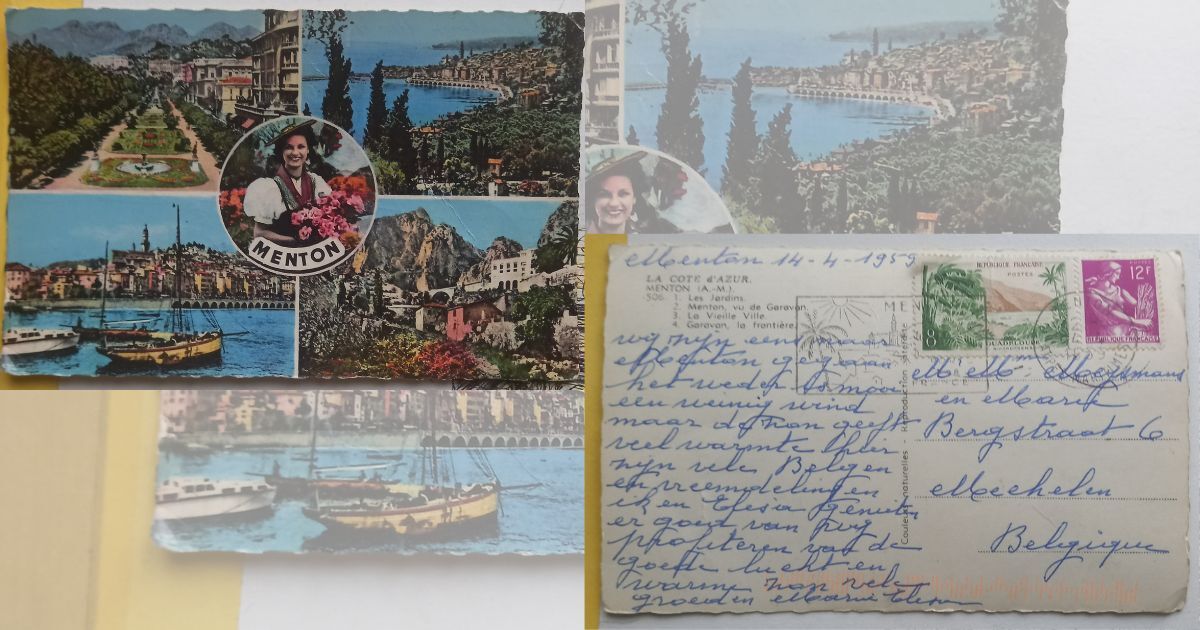 MENTON
Menton 14-4-1959
LA COTE d'AZUR.
MENTON (A.-M.).
506. 1. Les Jardins.
2. Menton, vu de Garavan.
3. La Vieille Ville.
4. Garavan, la frontière.
wij zijn een
Menton gegaan
het weder is mooi
een weinig wind
maar de zon geeft
veel warmte hier
zijn vele Belgen
en vreemdelingen
ik en Elesia genieten
er goed van wij
profiteren van de
goede lucht en
warme zon vele
groeten Marie
Couleurs naturelles - Reproduction interdite
REPUBLIQUE FRANÇAISE
POSTES
8
GUADELOUPE
POSTES
12F
REPUBLIQUE FRANÇAISE
ME
M. M. Meysmans
en Marie
Bergstraat 6
Mechelen
Belgique